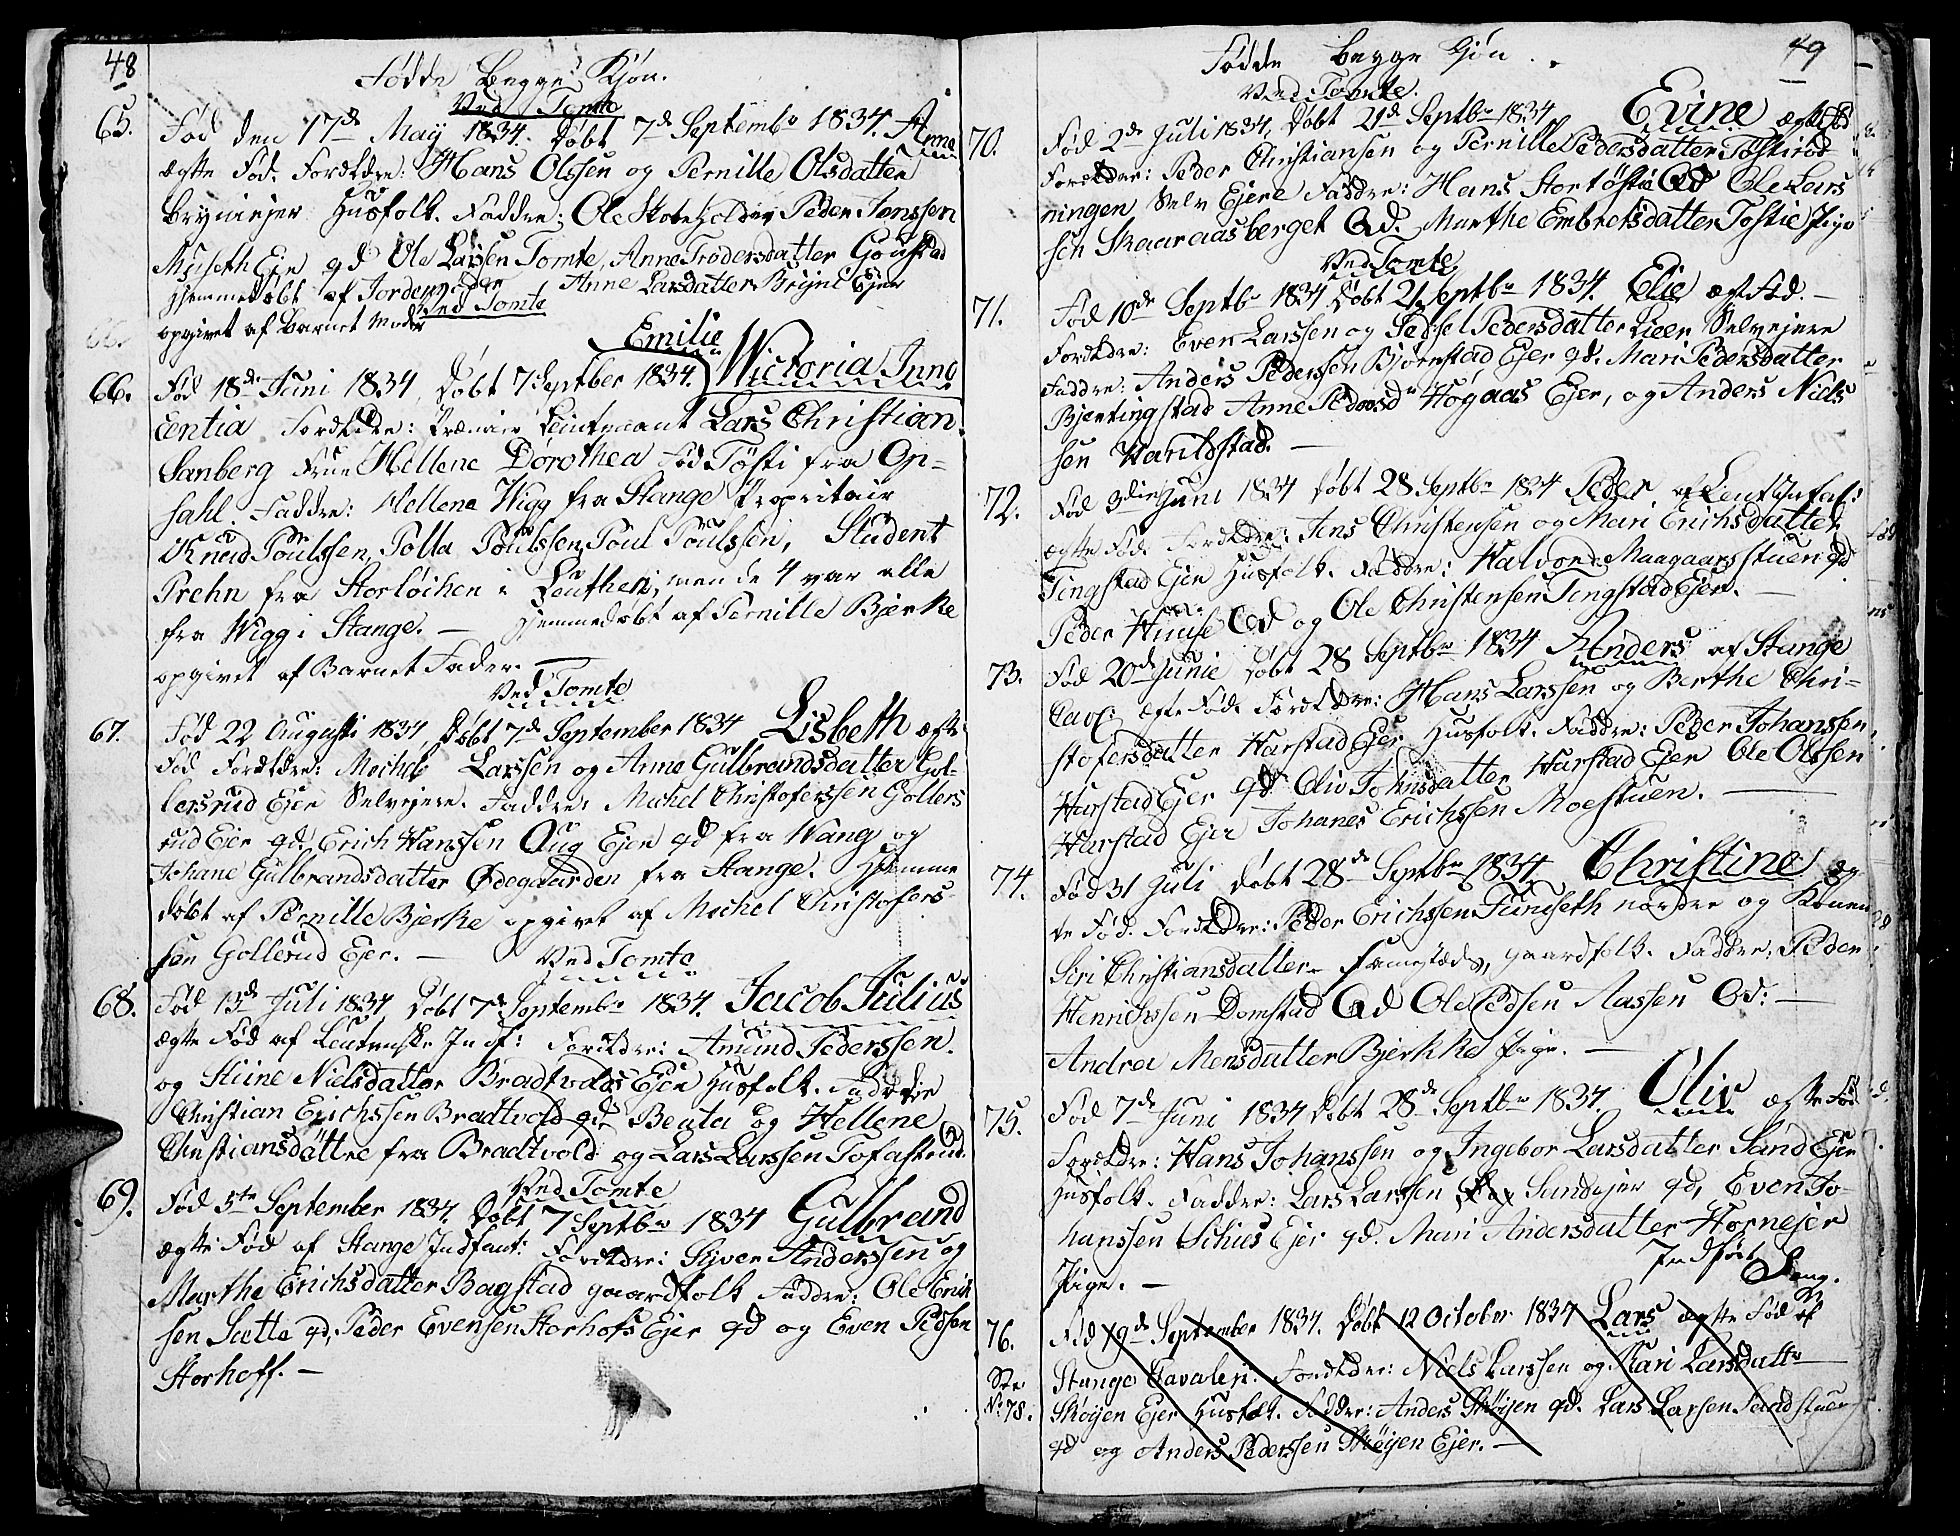 48
Fødde Begge Kjøn.
Ved Tomte
65. Fød den 17de May 1834. Døbt 7de Septembr 1834. Anne
ægte Fød. Forældre: Hans Olssen og Pernille Olsdatter
Bryniejer Husfolk. Faddre: Ole Peder Jenssen
Ejer gd Ole Larssen Tomte, Anne Goustad
Hjemmedøbt af Jordemoder Anne Larsdatter Bryni Ejer
opgivet af Barnet Moder Ved Tomte
66.
Emilie
66. Fød 18de Juni 1834, Døbt 7 Septbr 1834. Wictoria Inno
centia Forældre: Premier Leutenant Lars Christian
Sanberg Frue Hellene Dorothea fød Tøsti fra Op-
sahl. Faddre: Hellene Wigg fra Stange Propritair
Knud Poulssen, Polla Poulssen, Poul Poulssen, Student
Prehn fra Storløichen i Leuthen, men de 4 var alle
fra Wigg i Stange. — Hjemmedøbt af Pernille Bjerke
opgivet af Barnet Fader. —
Ved Tomte
67. Fød 22 Augusti 1834 Døbt 7de September 1834 Lisbeth ægte
Fød Forældre: Mechel Larssen og Anne Gulbrandsdatter Gol-
lersrud Ejer Selvejere. Faddre: Michel Christoferssen Gollers
rud Ejer gd. Erich Hanssen Aug Ejer gd fra Wang og
Johane Gulbrandsdatter Ødegaarden fra Stange. Hjemme
døbt af Pernille Bjerke opgivet af Mechel Christofers-
sen Gollerud Ejer. —
Ved Tomte
68. Fød 13de Juli 1834, Døbt 7de Septembr 1834. Jacob Julius
ægte Fød af Leutenske Inf: Forældre: Amund Pederssen.
og Stine Nielsdatter Bradtvolds Ejer Husfolk. Faddre
Christian Erichssen Bradtvold gd. Beata og Hellene
Christiansdøttre fra Bradtvold og Lars Larssen Tofastrud.
Ved Tomte
69. Fød 5te September 1834. Døbt 7 Septbr 1834 Gulbrand
ægte Fød af Stange Infant: Forældre: Syver Anderssen og
Marthe Erichsdatter Bagstad gaardfolk Faddre: Ole Erich
sen Sætte gd, Peder Evensen Storhofs Ejer gd og Even Pedsen
Storhoff. —
49
Fødde Begge Kjøn.
Ved Tomte.
70. Fød 2de Juli 1834, Døbt 21de Septbr 1834 Evine ægte Fød
Forældre: Peder Christiansen og Pernille Pedersdatter
ningen Selv Ejere Faddre: Hans Stortøstie Gd Ole Lars
sen Skaaraasberget Gd. Marthe Embretsdatter Tøstie Pige
Ved Tomte
71. Fød 10de Septbr 1834 Døbt 21 Septbr 1834. Elie ægt Fød. —
Forældre: Even Larssen og Sedsel Pedersdatter Lier Selvejere
Faddre: Anders Pederssen Bjørnstad Ejer gd. Mari Pedersdatter
Bjertingstad Anne Høgaas Ejer, og Anders Niels
sen Warildstad. —
72. Fød 3die Juni 1834 Døbt 28 Septbr 1834 Peder af Leut Infat:
ægte Fød. Forældre: Jens Christensen og Mari Erichsdatter
Tingstad Ejer Husfolk. Faddre: Halvor Maagaarsstuen gd
Peder Huuse Gd og Ole Christensen Tingstad Ejer. —
73. Fød 20de Junie Døbt 28 Septbr 1834 Anders af Stange
Cavl: ægte Fød. Forældre: Hans Larssen og Berthe Chri-
stofersdatter Harstad Ejer Husfolk. Faddre: Peder Johanssen
Harstad Ejer gd Oliv Johnsdatter Harstad Ejer Ole Olssen
Harstad Ejer Johanes Erichssen Moestuen. —
74. Fød 31 Juli Døbt 28de Septbr 1834 Christine æg
te Fød. Forældre: Peder Erichssen Fundseth nordre og Konen
Siri Christiansdatter samesteds, gaardfolk. Faddre: Peder
Henrichssen Domstad Gd Ole Pedsen Aassen Gd: —
Andrea Mensdatter Bjerkke Pige. —
75. Fød 7de Juni 1834 Døbt 28de Septbr 1834. Oliv ægte Fød
Forældre: Hans Johanssen og Ingebor Larsdatter Sand Ejer
Husfolk. Faddre: Lars Larssen Sandejer gd, Even Jo-
hanssen Sihus Ejer gd. Mari Andersdatter Hornejer
Pige. —
Indført
76. Fød 19de September 1834. Døbt 12 October 1834 Lars ægte Fød af
Stange Cavaleri. Forældre: Niels Larssen og Kari Larsdattr
See No 78. Skøyen Ejer Husfolk. Faddre: Anders Skøyen gd. Lars Larsen Sandstuen
gd og Anders Pederssen Skøyen Ejer. —